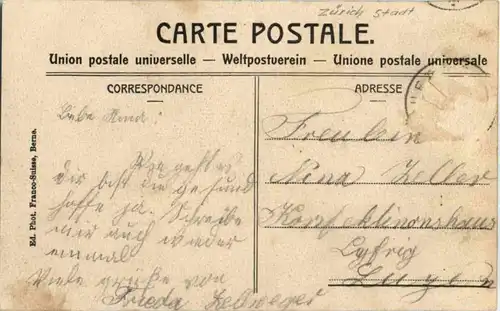 Zürich Stadt
CARTE POSTALE.
Union postale universelle — Weltpostverein — Unione postale universale
CORRESPONDANCE
ADRESSE
Ed. Phot. Franco-Suisse, Berne.
Liebe
Wie geht es
dir bist du gesund
hoffe ja. Schreibe
mir auch wieder
einmal
Viele grüße von
Frieda Zellweger
Freulein
Nina Zeller
Konfektionshaus